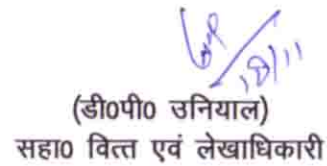 18/11
(डी0पी0 उनियाल)
सहा0 वित्त एवं लेखाधिकारी